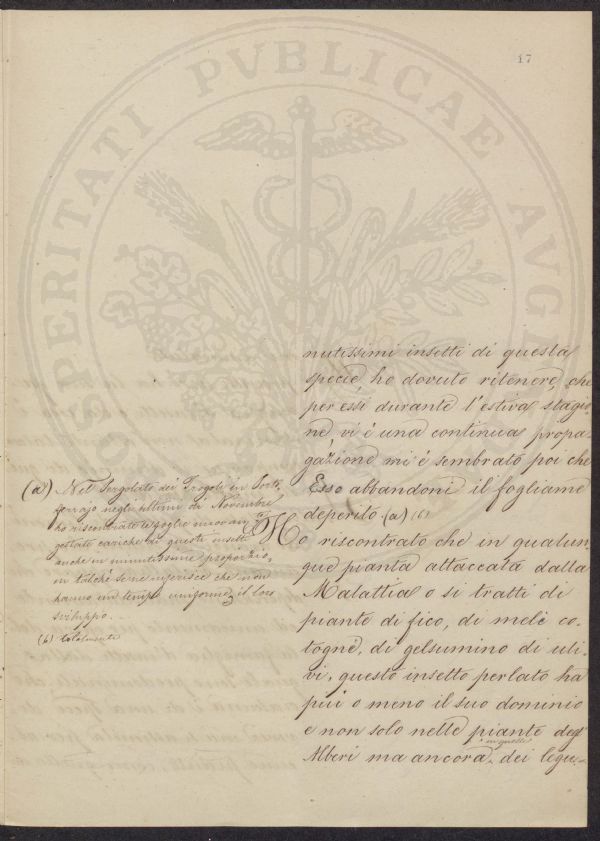 17
PROSPERITATI PVBLICAE AVGE
nutissimi insetti di questa
specie ho dovuto ritenere, che
per essi durante l'estiva stagio
ne, vi é una continua propa-
gazione mi é sembrato poi che
Esso abbandoni il fogliame
deperito. (a) (b)
Ho riscontrato che in qualun-
que pianta attaccata dalla
Malattia o si tratti di
piante di fico, di mele co-
togne, di gelsumino di uli-
vi, questo insetto perlato ha
piú o meno il suo dominio
e non solo nelle piante degl'
in quelle
Alberi ma ancora, dei legu-
(a) Nel Pergolato dei Fragoli in Porto
ferrajo negli ultimi di Novembre
ho riscontrate le foglie
cariche di questi insetti
anche in minutissime proporzio,
in talché se ne inferisce che non
hanno un tempo uniforme, il loro
sviluppo.
(b) totalmente